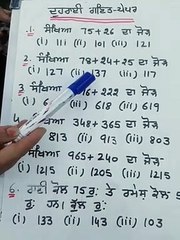 ਦੁਹਰਾਈ ਗਣਿਤ-ਪੇਪਰ
1. ਸੰਖਿਆ 75+26 ਦਾ ਜੋੜ
(i) 111 (ii) 101 (iii) 121
2. ਸੰਖਿਆ 78+24+25 ਦਾ ਜੋੜ
(i) 127 (ii) 137 (iii) 117
3 ਸੰਖਿਆ 6+222 ਦਾ ਜੋੜ
(i) 6 (ii) 618 (iii) 619
ਸੰਖਿਆ 348+365 ਦਾ ਜੋੜ
813 (ii) 903 (iii) 803
ਸੰਖਿਆ 965+240 ਦਾ ਜੋੜ
(i) 1205 (ii) 1215 (iii) 1225
6. ਰਾਣੀ ਕੋਲ 75 ਰੁ: ਤੇ ਰਮੇਸ਼ ਕੋਲ
ਰੁ: ਹਨ। ਕੁੱਲ ਰੁ:
(i) 133 (ii) 143 (iii) 103